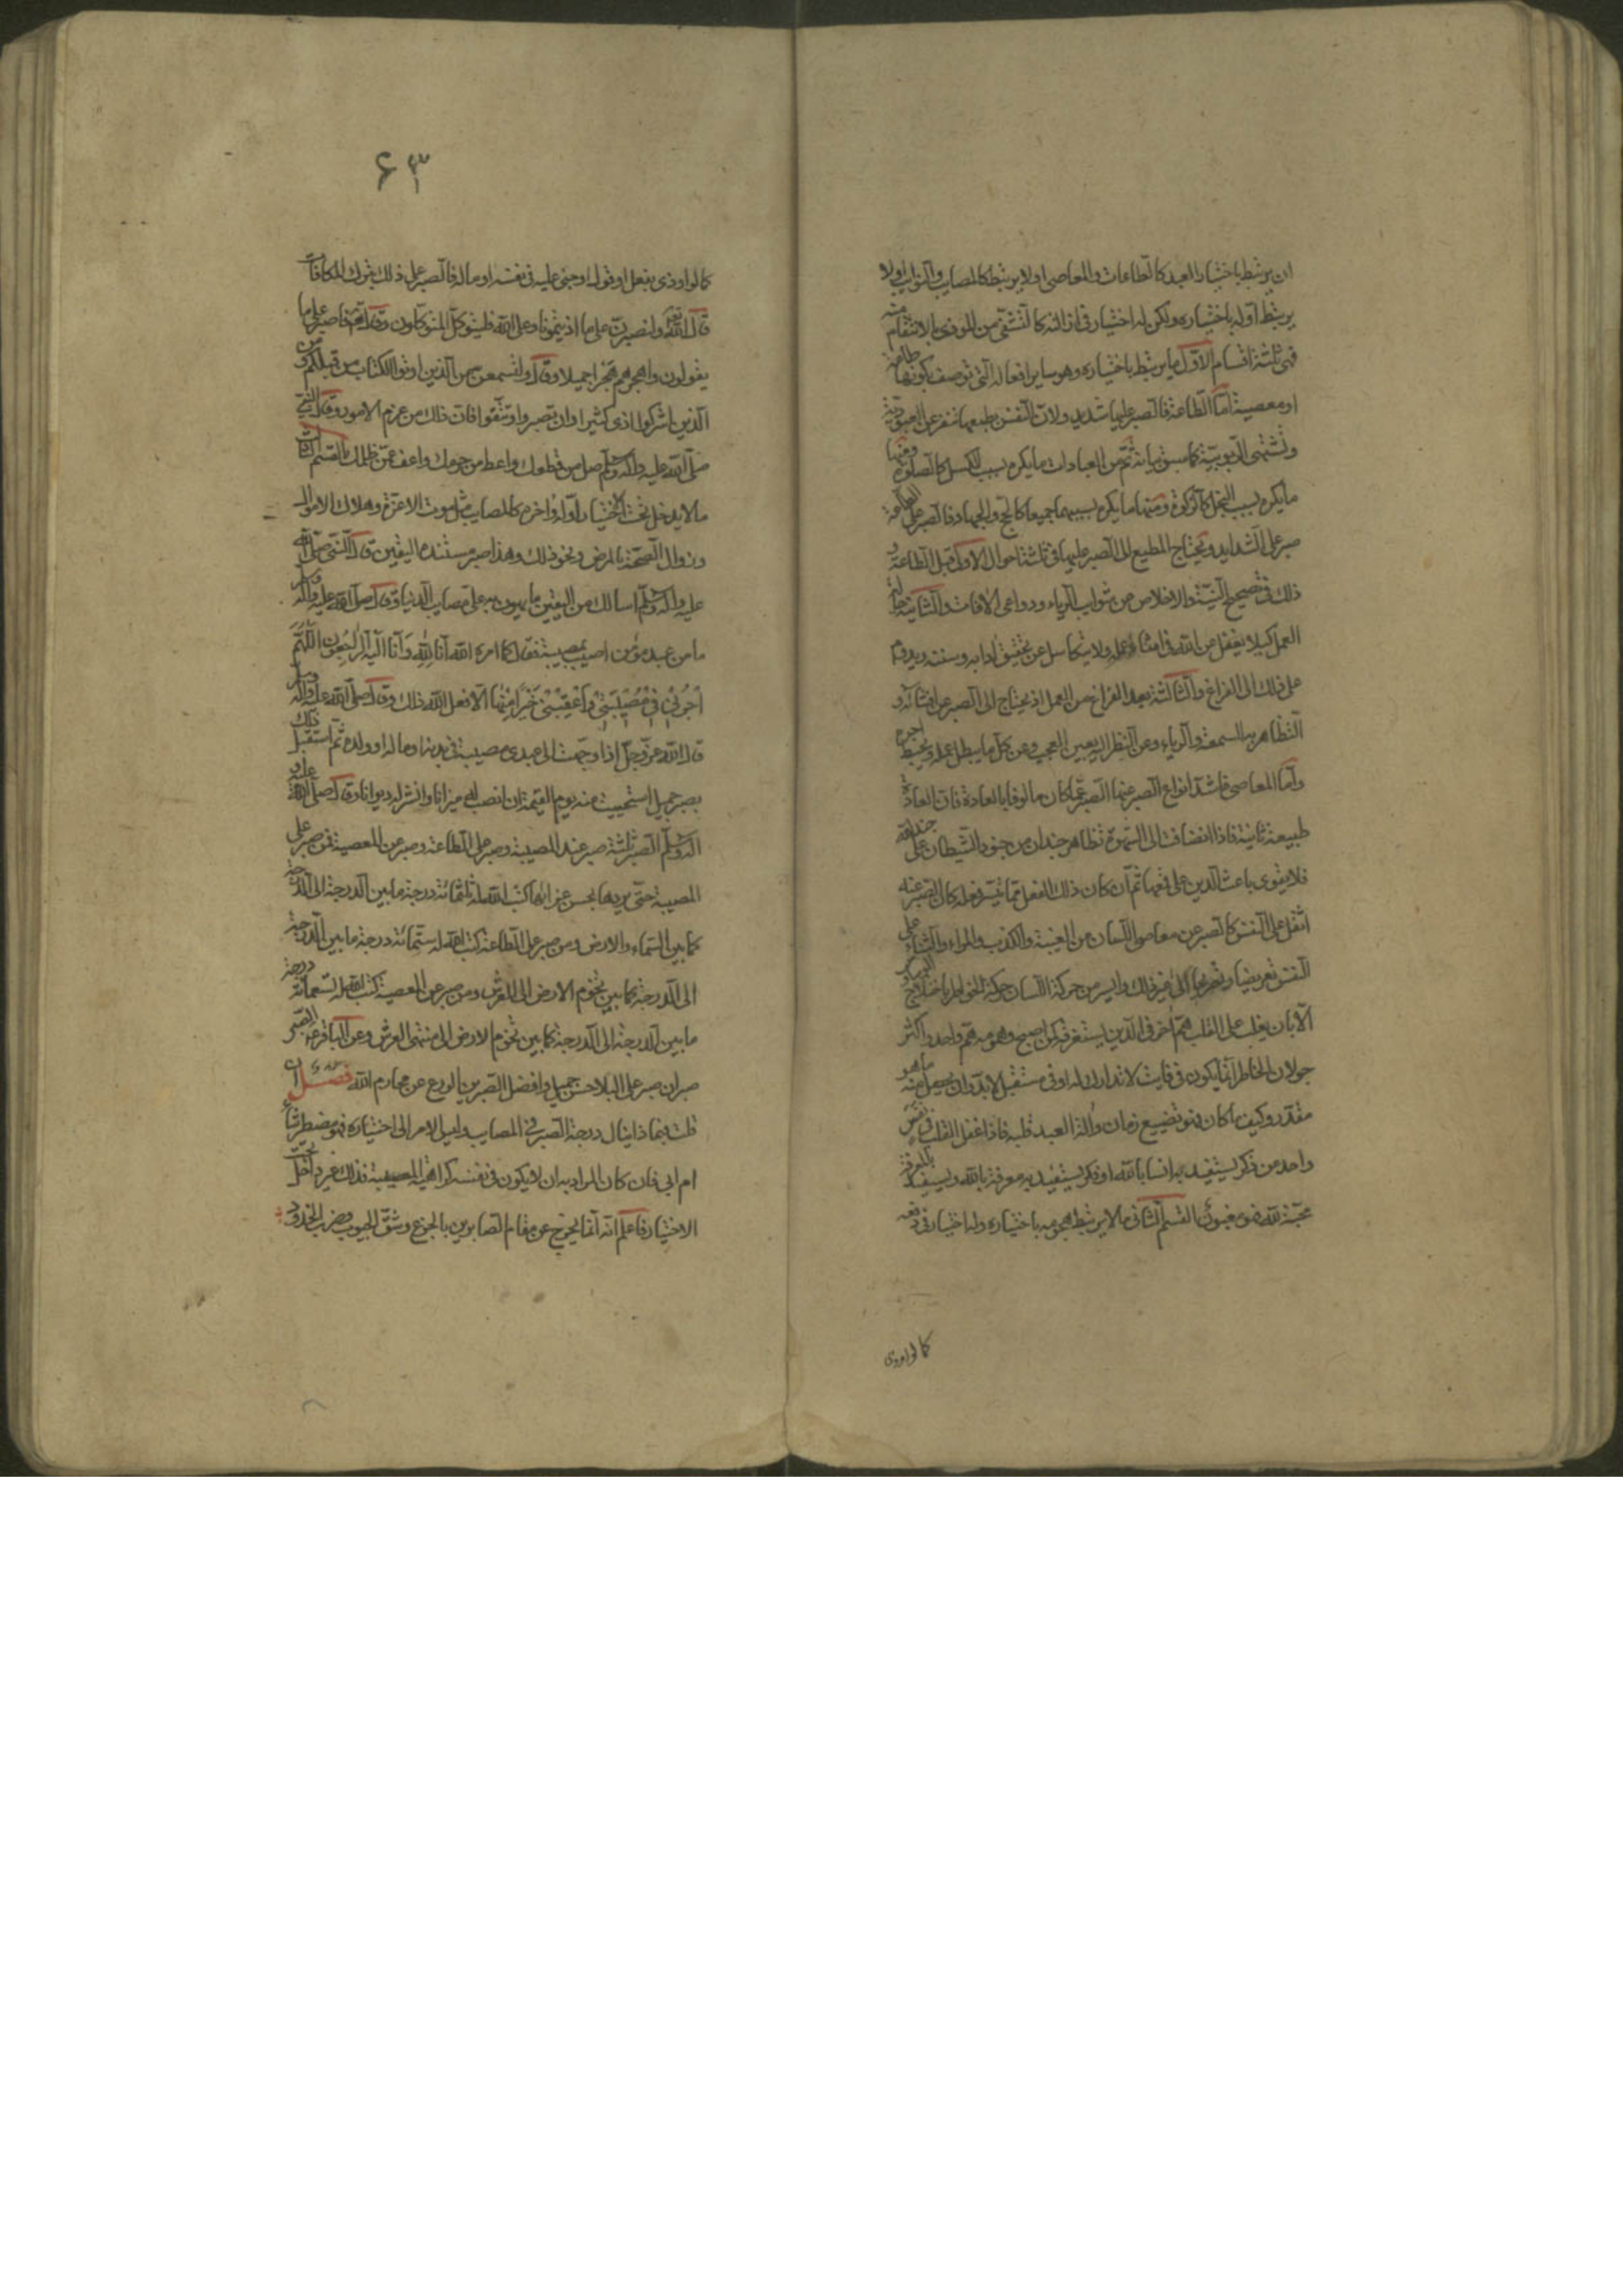 ان يرتبط باختيار العبد كالطاعات والمعاصي او لا يرتبط كالمصايب والنوايب او لا
يرتبط اوله باختياره ولكن له اختيار في ازالته كالتشفي من الموذي بالانتقام منه
فهي ثلثة اقسام الاول ما يرتبط باختياره وهو ساير افعاله التي توصف بكونها طاعة
او معصية اما الطاعة فالصبر عليها شديد ولان النفس بطبعها تنفر عن العبودية
وتشتهي الربوبية كما سبق بيانه ثم من العبادات ما يكره بسبب الكسل كالصلوة ومنها
ما يكره بسبب البخل كالزكوة ومنها ما يكره بسببهما جميعا كالحج والجهاد فالصبر على الطاعة
صبر على الشدايد ويحتاج المطيع الى الصبر عليها في ثلثة احوال الاول قبل الطاعة و
ذلك في تصحيح النية والاخلاص من شوايب الرياء ودواعي الافات والثانية حالة
العمل كيلا يغفل عن الله في اثناء عمله ولا يتكاسل عن تحقيق ادابه وسننه ويدوم
على ذلك الى الفراغ والثالثة بعد الفراغ من العمل اذ يحتاج الى الصبر عن افشائه و
التظاهر به للسمعة والرياء وعن النظر اليه بعين العجب وعن كل ما يبطل عمله ويحبط اجره
واما المعاصي فاشد انواع الصبر عنها الصبر عما كان مالوفا بالعادة فان العادة
طبيعة ثانية فاذا انضافت الى الشهوة تظاهر جندان من جنود الشيطان على جند الله
فلا يقوى باعث الدين على قمعها ثم ان كان ذلك الفعل مما تيسر فعله كان الصبر عنه
اثقل على النفس كالصبر عن معاصي اللسان من الغيبة والكذب والمراء والثناء على
النفس تعريضا وتصريحا الى غير ذلك وايسر من حركة اللسان حركة الخواطر باختلاج الوساوس
الا بان يغلب على القلب هم اخر في الدين يستغرقه كمن اصبح وهمومه هم واحد واكثر
جولان الخاطر انما يكون في فايت لا تدارك له او في مستقبل لا بد وان يحصل منه ما هو
مقدر وكيف ما كان فهو تضييع زمان والة العبد قلبه فاذا غفل القلب في نفس
واحد من ذكر يستفيد به انسا بالله او فكر يستفيد به معرفة بالله ويستفيد بالمعرفة
محبة لله فهو مغبون القسم الثاني ما لا يرتبط هجومه باختياره وله اختيار في دفعه
كما لو اوذي
۶۳
كما لو اوذي بفعل او قول او جني عليه في نفسه او ماله فالصبر على ذلك بترك المكافات
قال الله تعالى ولنصبرن على ما اذيتمونا وعلى الله فليتوكل المتوكلون وقال تعالى فاصبر على ما
يقولون واهجرهم هجرا جميلا وقال ولتسمعن من الذين اوتوا الكتاب من قبلكم ومن
الذين اشركوا اذى كثيرا وان تصبروا وتتقوا فان ذلك من عزم الامور وقال النبي
صلى الله عليه واله وسلم صل من قطعك واعط من حرمك واعف عمن ظلمك القسم الثالث
ما لا يدخل تحت الاختيار اوله واخره كالمصايب مثل موت الاعزة وهلاك الاموال
وزوال الصحة بالمرض ونحو ذلك وهذا صبر مستنده اليقين قال النبي صلى الله
عليه واله وسلم اسالك من اليقين ما يهون به على مصايب الدنيا وقال صلى الله عليه واله وسلم
ما من عبد مؤمن اصيب بمصيبة فقال كما امره الله انا لله وانا اليه راجعون اللهم
اجرني في مصيبتي واعقبني خيرا منها الا فعل الله ذلك وقال صلى الله عليه واله وسلم
قال الله عز وجل اذا وجهت الى عبدي مصيبة في بدنه او ماله او ولده ثم استقبل ذلك
بصبر جميل استحييت منه يوم القيمة ان انصب له ميزانا وانشر له ديوانا وقال صلى الله عليه و
اله وسلم الصبر ثلثة صبر عند المصيبة وصبر على الطاعة وصبر عن المعصية فمن صبر على
المصيبة حتى يردها بحسن عزائها كتب الله له ثلثمائة درجة ما بين الدرجة الى الدرجة
كما بين السماء والارض ومن صبر على الطاعة كتب الله له ستمائة درجة ما بين الدرجة
الى الدرجة كما بين تخوم الارض الى العرش ومن صبر عن المعصية كتب الله له تسعمائة درجة
ما بين الدرجة الى الدرجة كما بين تخوم الارض الى منتهى العرش وعن الباقر ع الصبر
صبران صبر على البلاء حسن جميل وافضل الصبرين الورع عن محارم الله فصل ان
قلت بماذا ينال درجة الصبر في المصايب وليس الامر الى اختياره فهو مضطر شاء
ام ابى فان كان المراد به ان لا يكون في نفسه كراهية المصيبة فذلك غير داخل تحت
الاختيار فاعلم انه انما يخرج عن مقام الصابرين بالجزع وشق الجيوب وضرب الخدود